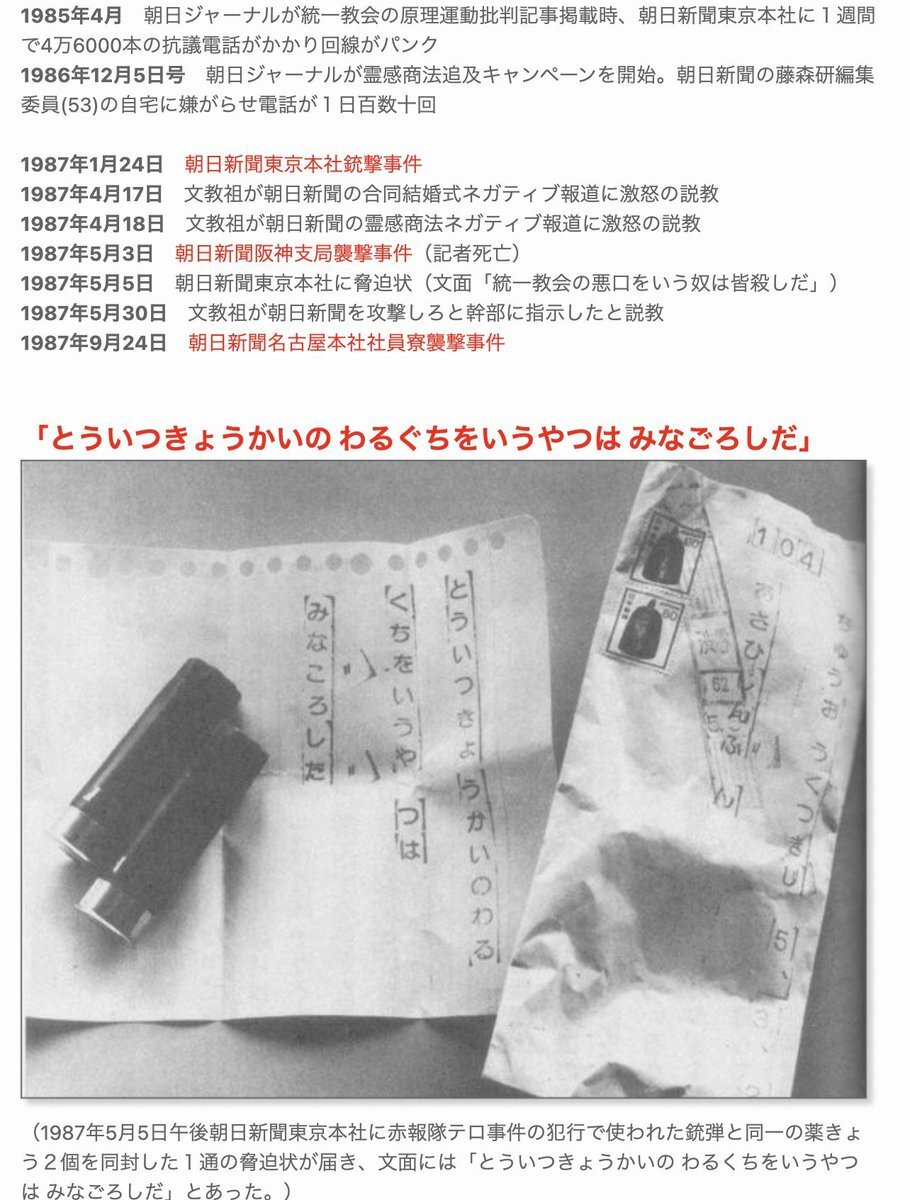 1985年4月　朝日ジャーナルが統一教会の原理運動批判記事掲載時、朝日新聞東京本社に１週間
で4万6000本の抗議電話がかかり回線がパンク
1986年12月5日号　朝日ジャーナルが霊感商法追及キャンペーンを開始。朝日新聞の藤森研編集
委員(53)の自宅に嫌がらせ電話が１日百数十回
1987年1月24日　朝日新聞東京本社銃撃事件
1987年4月17日　文教祖が朝日新聞の合同結婚式ネガティブ報道に激怒の説教
1987年4月18日　文教祖が朝日新聞の霊感商法ネガティブ報道に激怒の説教
1987年5月3日　朝日新聞阪神支局襲撃事件（記者死亡）
1987年5月5日　朝日新聞東京本社に脅迫状（文面「統一教会の悪口をいう奴は皆殺しだ」）
1987年5月30日　文教祖が朝日新聞を攻撃しろと幹部に指示したと説教
1987年9月24日　朝日新聞名古屋本社社員寮襲撃事件
「とういつきょうかいの わるぐちをいうやつは みなごろしだ」
とういつきょうかいのわる
くちをいうやつは
みなころしだ
104
60
60
62
5
あさひしんぶん
ちゅうおうくつきじ
5、
3、
（1987年5月5日午後朝日新聞東京本社に赤報隊テロ事件の犯行で使われた銃弾と同一の薬きょ
う２個を同封した１通の脅迫状が届き、文面には「とういつきょうかいの わるくちをいうやつ
は みなごろしだ」とあった。）